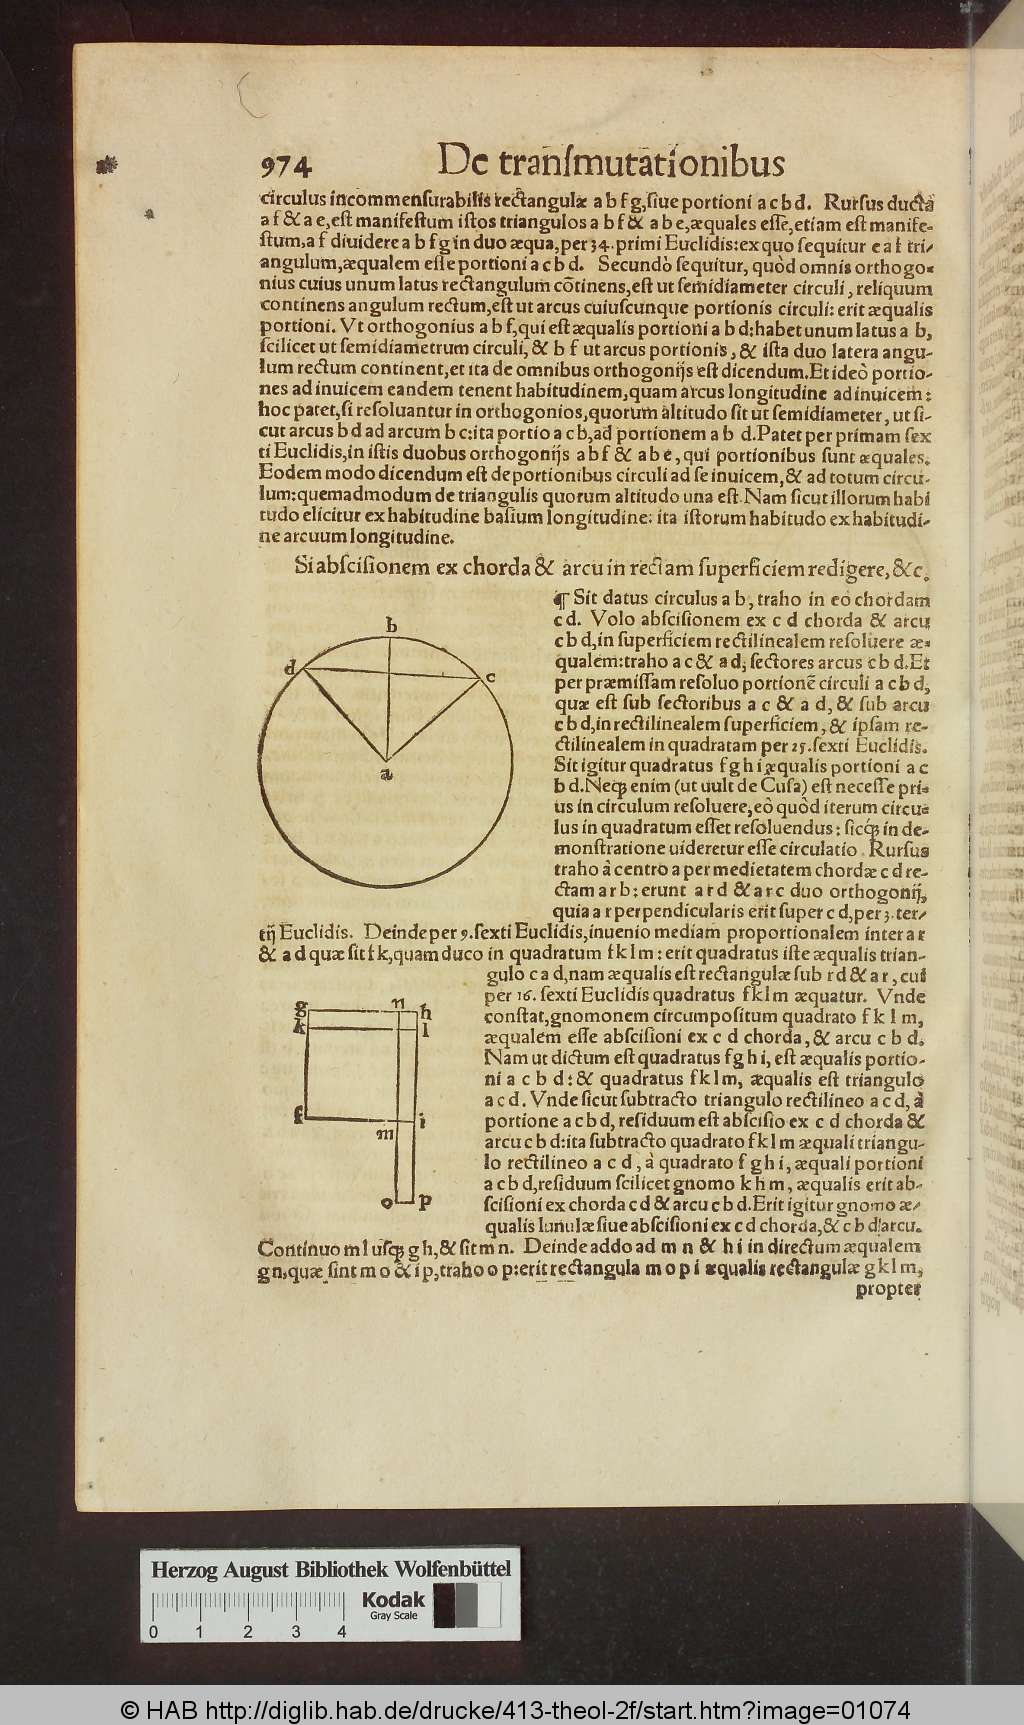 974 De tranſmutationibus
circulus incommenſurabilis rectangulæ a b f g, ſiue portioni a c b d. Rurſus ducta
a f & a e, eſt manifeſtum iſtos triangulos a b f & a b e, æquales eſſe, etiam eſt manife-
ſtum, a f diuidere a b f g in duo æqua, per 34. primi Euclidis: ex quo ſequitur e a f tri-
angulum, æqualem eſſe portioni a c b d. Secundò ſequitur, quòd omnis orthogo-
nius cuius unum latus rectangulum cōtinens, eſt ut ſemidiameter circuli, reliquum
continens angulum rectum, eſt ut arcus cuiuſcunque portionis circuli: erit æqualis
portioni. Vt orthogonius a b f, qui eſt æqualis portioni a b d: habet unum latus a b,
ſcilicet ut ſemidiametrum circuli, & b f ut arcus portionis, & iſta duo latera angu-
lum rectum continent, et ita de omnibus orthogonijs eſt dicendum. Et ideò portio-
nes ad inuicem eandem tenent habitudinem, quam arcus longitudine ad inuicem:
hoc patet, ſi reſoluantur in orthogonios, quorum altitudo ſit ut ſemidiameter, ut ſi-
cut arcus b d ad arcum b c: ita portio a c b, ad portionem a b d. Patet per primam ſex
ti Euclidis, in iſtis duobus orthogonijs a b f & a b e, qui portionibus ſunt æquales.
Eodem modo dicendum eſt de portionibus circuli ad ſe inuicem, & ad totum circu-
lum: quemadmodum de triangulis quorum altitudo una eſt. Nam ſicut illorum habi
tudo elicitur ex habitudine baſium longitudine: ita iſtorum habitudo ex habitudi-
ne arcuum longitudine.
Si abſciſionem ex chorda & arcu in rectam ſuperficiem redigere, &c.
¶ Sit datus circulus a b, traho in eo chordam
c d. Volo abſciſionem ex c d chorda & arcu
c b d, in ſuperficiem rectilinealem reſoluere æ-
qualem: traho a c & a d, ſectores arcus c b d. Et
per præmiſſam reſoluo portionē circuli a c b d,
quæ eſt ſub ſectoribus a c & a d, & ſub arcu
c b d, in rectilinealem ſuperficiem, & ipſam re-
ctilinealem in quadratam per 25. ſexti Euclidis.
Sit igitur quadratus f g h i æqualis portioni a c
b d. Neqꝫ enim (ut uult de Cuſa) eſt neceſſe pri-
us in circulum reſoluere, eò quòd iterum circu-
lus in quadratum eſſet reſoluendus: ſicqꝫ in de-
monſtratione uideretur eſſe circulatio. Rurſus
traho à centro a per medietatem chordæ c d re-
ctam a r b: erunt a r d & a r c duo orthogonij,
quia a r perpendicularis erit ſuper c d, per 3. ter-
tij Euclidis. Deinde per 9. ſexti Euclidis, inuenio mediam proportionalem inter a r
& a d quæ ſit f k, quam duco in quadratum f k l m: erit quadratus iſte æqualis trian-
gulo c a d, nam æqualis eſt rectangulæ ſub r d & a r, cui
per 16. ſexti Euclidis quadratus f k l m æquatur. Vnde
conſtat, gnomonem circumpoſitum quadrato f k l m,
æqualem eſſe abſciſioni ex c d chorda, & arcu c b d.
Nam ut dictum eſt quadratus f g h i, eſt æqualis portio-
ni a c b d: & quadratus f k l m, æqualis eſt triangulo
a c d. Vnde ſicut ſubtracto triangulo rectilineo a c d, à
portione a c b d, reſiduum eſt abſciſio ex c d chorda &
arcu c b d: ita ſubtracto quadrato f k l m æquali triangu-
lo rectilineo a c d, à quadrato f g h i, æquali portioni
a c b d, reſiduum ſcilicet gnomo k h m, æqualis erit ab-
ſciſioni ex chorda c d & arcu c b d. Erit igitur gnomo æ-
qualis lunulæ ſiue abſciſioni ex c d chorda, & c b d arcu.
Continuo m l uſqꝫ g h, & ſit m n. Deinde addo ad m n & h i in directum æqualem
g n, quæ ſint m o & i p, traho o p: erit rectangula m o p i æqualis rectangulæ g k l m,
propter
b
d
c
a
g
n
h
k
l
f
m
i
o
p
Herzog August Bibliothek Wolfenbüttel
Kodak
Gray Scale
0 1 2 3 4
© HAB http://diglib.hab.de/drucke/413-theol-2f/start.htm?image=01074